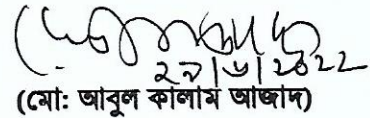 ২৯/৬/2022
(মো: আবুল কালাম আজাদ)